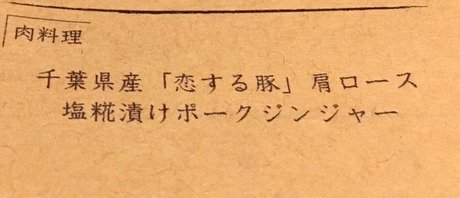 肉料理
千葉県産「恋する豚」肩ロース
塩糀漬けポークジンジャー